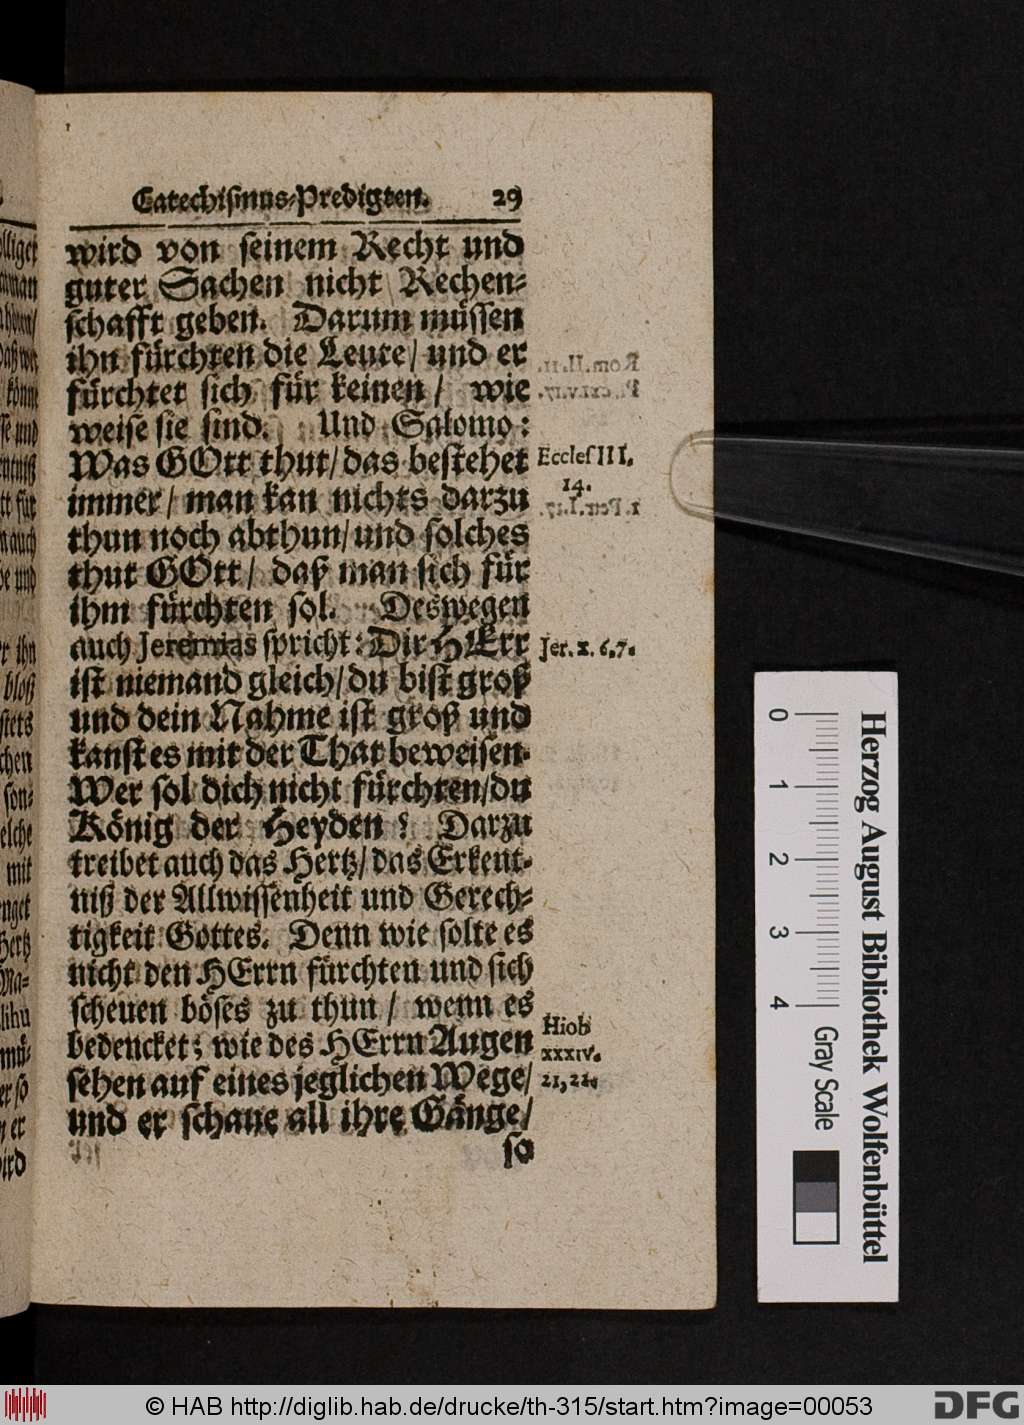 Catechismus-Predigten. 29
wird von seinem Recht und
guter Sachen nicht Rechen-
schafft geben. Darum müssen
ihn fürchten die Leute/ und er
fürchtet sich für keinen/ wie
weise sie sind. Und Salomo:
Was GOtt thut/ das bestehet
Eccles III.
14.
immer/ man kan nichts darzu
thun noch abthun/ und solches
thut GOtt/ daß man sich für
ihm fürchten sol. Deswegen
auch Jeremias spricht: Dir HErr
Jer. x. 6.7.
ist niemand gleich/ du bist groß
und dein Nahme ist groß und
kanst es mit der That beweisen.
Wer sol dich nicht fürchten/ du
König der Heyden? Darzu
treibet auch das Hertz/ das Erkent-
niß der Allwissenheit und Gerech-
tigkeit Gottes. Denn wie solte es
nicht den HErrn fürchten und sich
scheuen böses zu thun/ wenn es
bedencket; wie des HErrn Augen
Hiob
xxxiv.
21,22.
sehen auf eines jeglichen Wege/
und er schaue all ihre Gänge/
so
0 1 2 3 4 Gray Scale
Herzog August Bibliothek Wolfenbüttel
© HAB http://diglib.hab.de/drucke/th-315/start.htm?image=00053
DFG